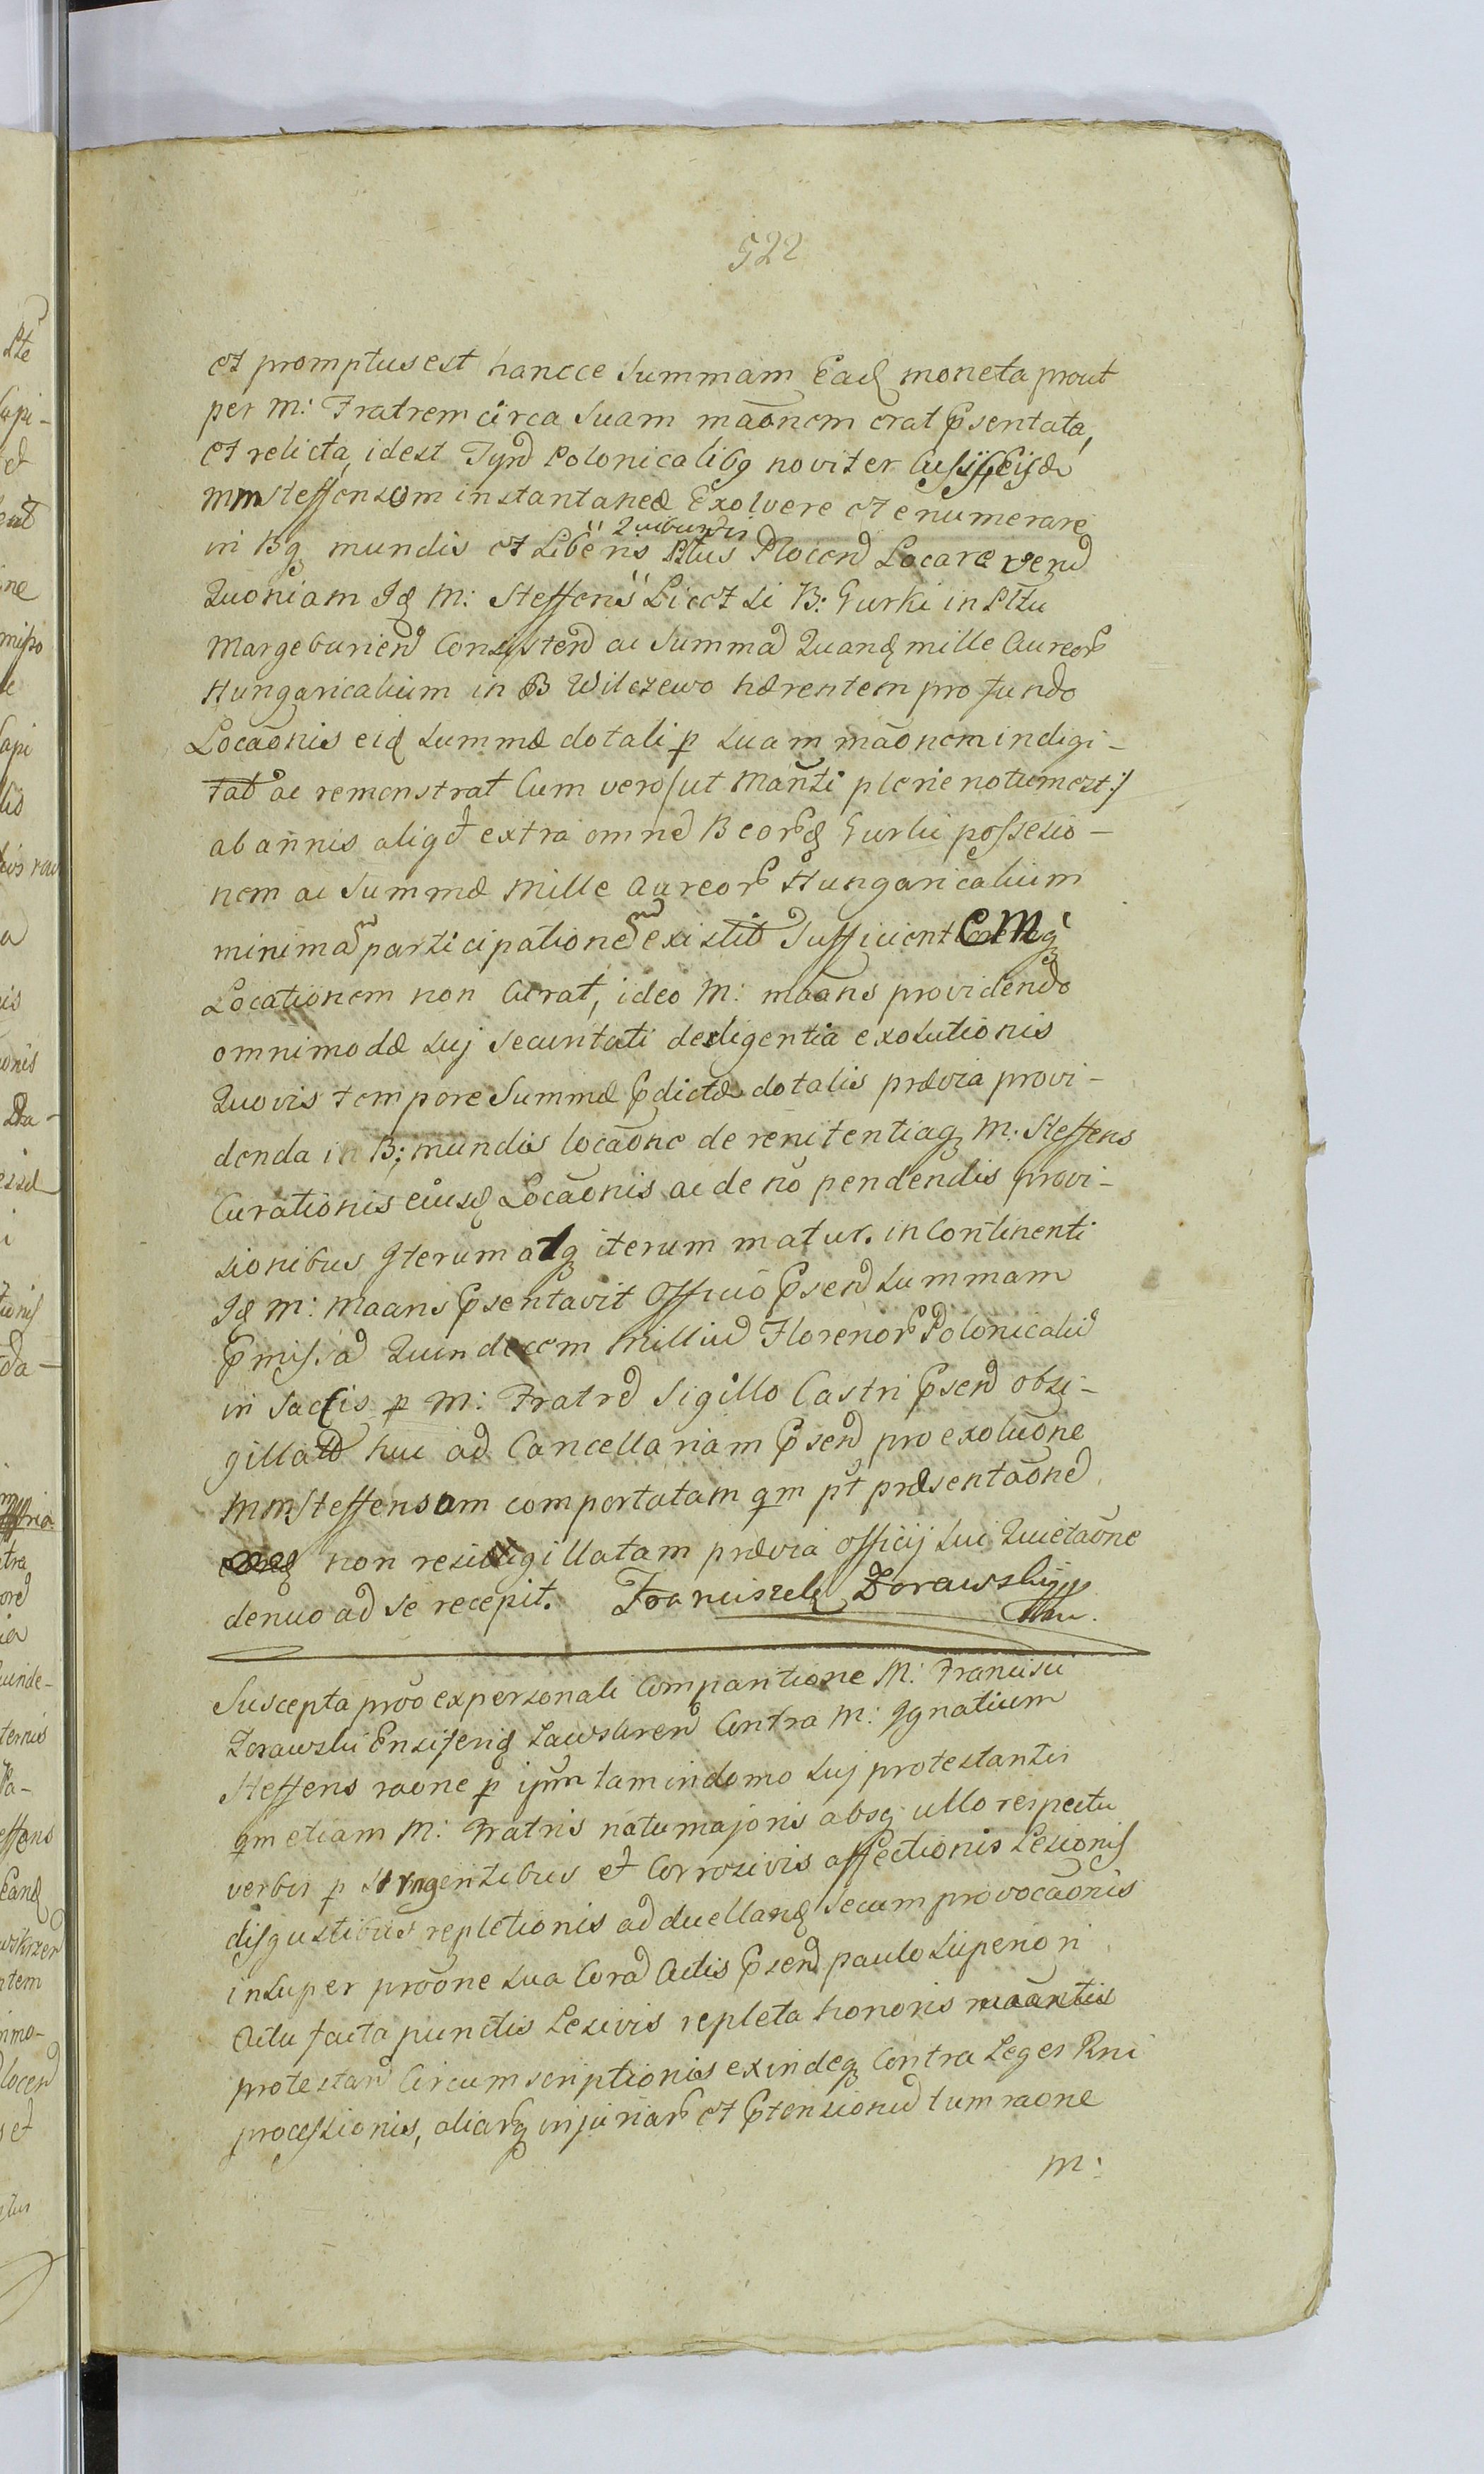 522
et promptus est hancce Summam Ead moneta prout
per M: Fratrem circa Suam maonem erat psentata,
et relicta, idest Tynd Polonicalibq noviter
mm Steffensom instantanee Exolvere et enumerare
Quibusvis
in Bq mundis et Liberis Pltus Plocen Locare
Quoniam Id M: Steffens Licet si B: Gurki in Pltu
Margeburien Consisten ac Summa Quand mille Aureor
Hungaricalium in B Wilczewo hærentem pro fundo
Locaonis eid Summæ dotali p suam maonem indigi-
tat ac remonstrat Cum vero /ut Manti plene notum est:/
ab annis aliqt extra omne Beord Gurki possesio-
nem ac Summæ Mille Aureor Hungaricalium
minima participatione existit Sufficientemq
Locationem non Curat, ideo M: maans providendo
omnimodæ suj Securitati de diligentia exolutionis
Quovis tempore Summæ pdictæ dotalis prævia provi-
denda in B; mundis locaone de renitentiaq M: Steffens
Curationis eiusd Locaonis ac de no pendendis provi-
sionibus Iterum atq iterum matur. in Continenti
Id M: Maans psentavit Officio psen Summam
pmis. ad Quindecem Milliu Florenor Polonicaliu
in Saccis p M: Fratre Sigillo Castri psen obsi-
gillat huc ad Cancellariam psen pro exoluone
mm Steffensom comportatam qm pt præsentaone
non resigillatam prævia officij sui Quietaone
denuo ad se recepit. Franciszek Zorawski
Suscepta proo ex personali Comparitione M: Francisci
Zorawski Ensiferid Zawskren Contra M: Ignatium
Steffens raone p ipum tam in domo suj protestantis
qm etiam M: Fratris natu majoris absq ullo respectu
verbis p stringentibus et Corrosivis affectionis Lesionis
disgustibus repletionis ad duelland Secum provocaonis
insuper proone sua Cora Actis psen paulo Superiori
Actu facta punctis Lesivis repleta honoris maantis
protestan Circumscriptionis exindeq Contra Leges Rni
processionis, aliarq injuriar et ptensionu tum raone
M: